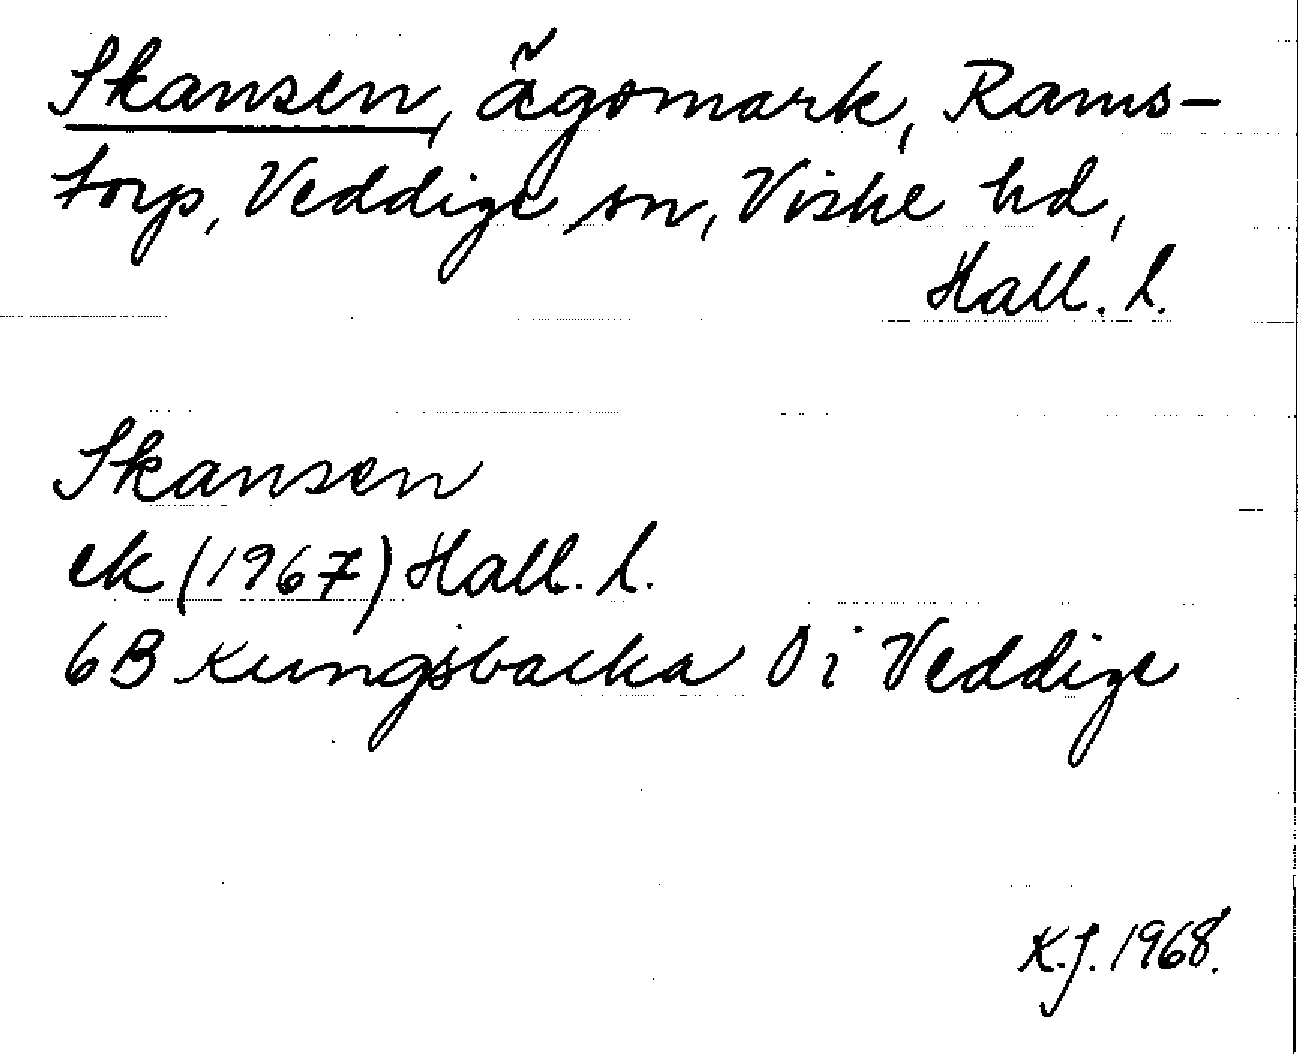 Skansen, ägomark, Rams-
torp, Veddige sn, Viske hd,
Hall. l.
Skansen
ek (1967) Hall. l.
6B Kungsbacka Ö i Veddige
K.J. 1968.